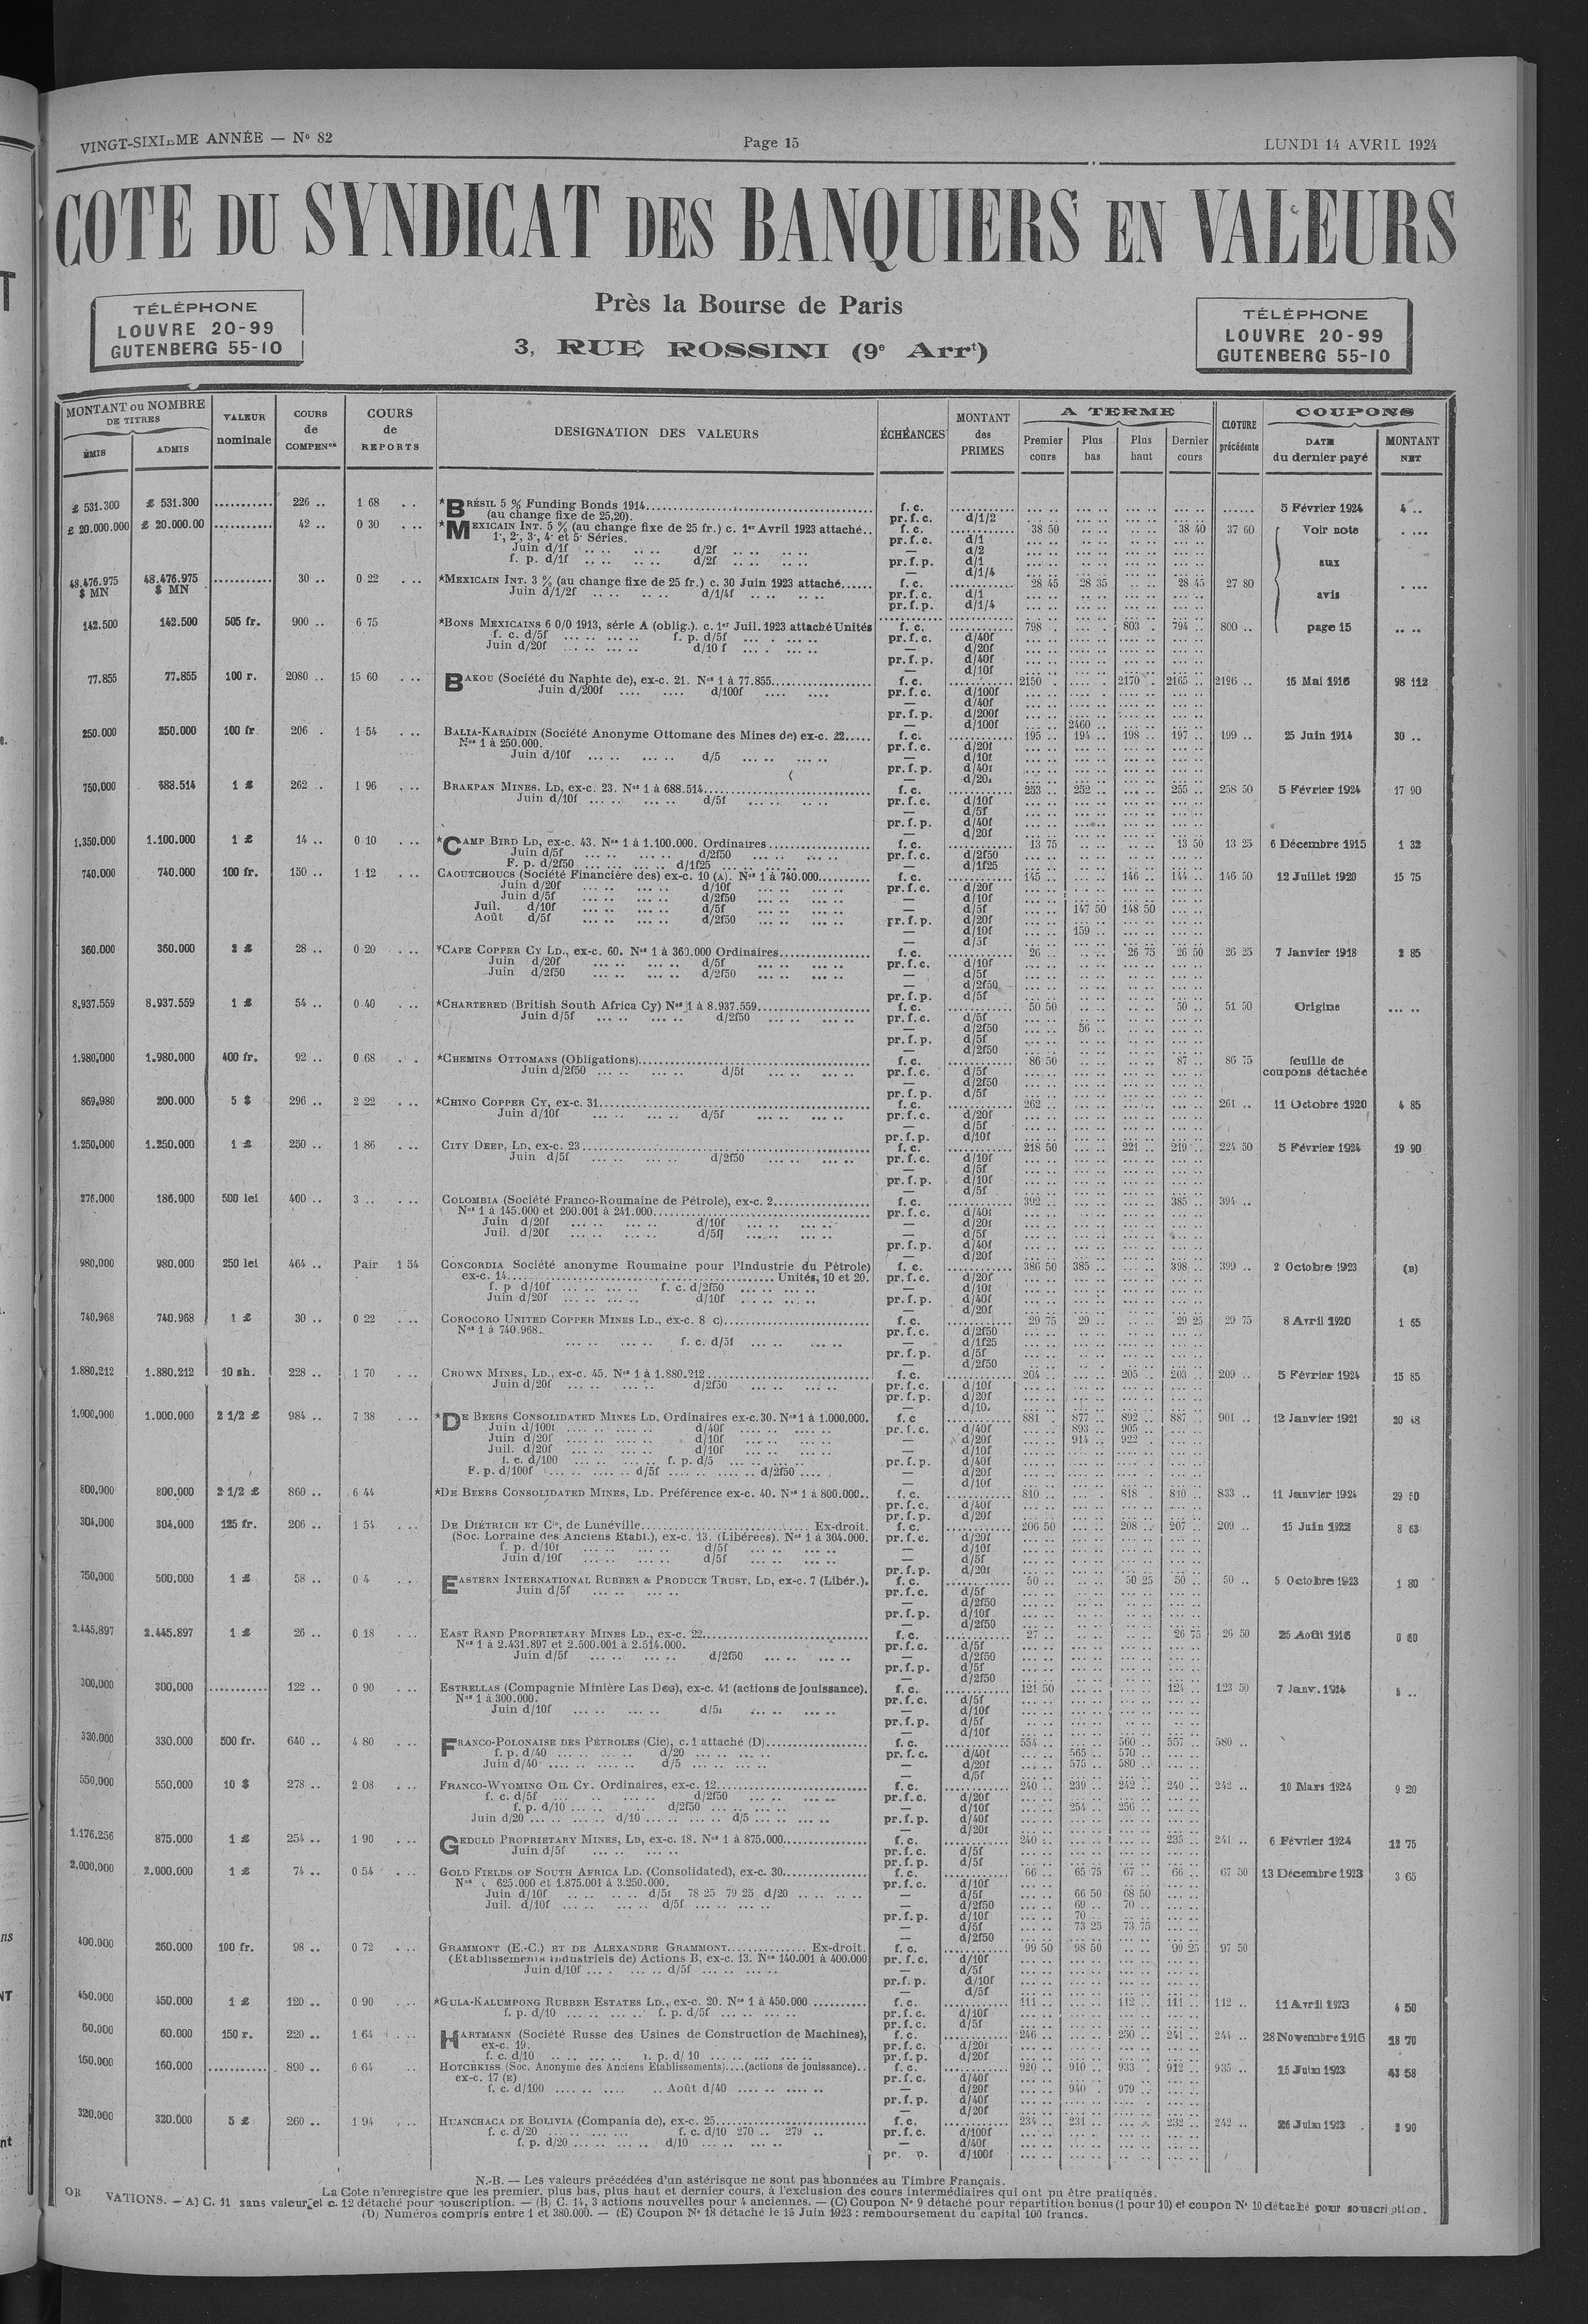 VINGT-SIXIÈME ANNÉE — N° 82
Page 15
LUNDI 14 AVRIL 1924
COTE DU SYNDICAT DES BANQUIERS EN VALEURS
TÉLÉPHONE
LOUVRE 20-99
GUTENBERG 55-10
Près la Bourse de Paris
3, RUE ROSSINI (9e Arrt)
TÉLÉPHONE
LOUVRE 20-99
GUTENBERG 55-10
MONTANT ou NOMBRE DE TITRES
ÉMIS
ADMIS
VALEUR nominale
COURS de COMPENon
COURS de REPORTS
DESIGNATION DES VALEURS
ÉCHÉANCES
MONTANT des PRIMES
A TERME
Premier cours
Plus bas
Plus haut
Dernier cours
CLOTURE précédente
COUPONS
DATE du dernier payé
MONTANT NET
£ 531.300 £ 531.300 .......... 226 .. 1 68 .. . *BRÉSIL 5 % Funding Bonds 1914 f. c. 5 Février 1924 4 ..
(au change fixe de 25,20). pr. f. c. d/1/2
£ 20.000.000 £ 20.000.00 .......... 42 .. 0 30 . .. *MEXICAIN INT. 5 % (au change fixe de 25 fr.) c. 1er Avril 1923 attaché.. f. c. 38 50 38 40 37 60 Voir note
1e, 2e, 3e, 4e et 5e Séries. pr. f. c. d/1
Juin d/1f d/2f — d/2
f. p. d/1f d/2f pr. f. p. d/1 aux
— d/1/4
48.476.975 $ MN 48.476.975 $ MN .......... 30 .. 0 22 . .. *MEXICAIN INT. 3 % (au change fixe de 25 fr.) c. 30 Juin 1923 attaché...... f. c. 28 45 28 35 28 45 27 80
Juin d/1/2f d/1/4f pr. f. c. d/1 avis
pr. f. p. d/1/4
142.500 142.500 505 fr. 900 .. 6 75 *BONS MEXICAINS 6 0/0 1913, série A (oblig.). c. 1er Juil. 1923 attaché Unités f. c. 798 803 794 800 .. page 15
f. c. d/5f f. p. d/5f pr. f. c. d/40f
Juin d/20f d/10 f — d/20f
pr. f. p. d/40f
— d/10f
77.855 77.855 100 r. 2080 .. 15 60 . .. BAKOU (Société du Naphte de), ex-c. 21. Nos 1 à 77.855 f. c. 2150 2170 2165 2196 .. 15 Mai 1916 98 112
Juin d/200f d/100f pr. f. c. d/100f
— d/40f
pr. f. p. d/200f
— d/100f 2460
250.000 250.000 100 fr 206 . 1 54 . .. BALIA-KARAÏDIN (Société Anonyme Ottomane des Mines de) ex-c. 22..... f. c. 195 194 198 197 199 .. 25 Juin 1914 30 ..
Nos 1 à 250.000. pr. f. c. d/20f
Juin d/10f d/5 — d/10f
pr. f. p. d/40f
— d/20f
750.000 688.514 1 £ 262 .. 1 96 . .. BRAKPAN MINES. LD, ex-c. 23. Nos 1 à 688.514 f. c. 253 252 255 258 50 5 Février 1924 17 90
Juin d/10f d/5f pr. f. c. d/10f
— d/5f
pr. f. p. d/40f
— d/20f
1.350.000 1.100.000 1 £ 14 .. 0 10 . .. *CAMP BIRD LD, ex-c. 43. Nos 1 à 1.100.000. Ordinaires f. c. 13 75 13 50 13 25 6 Décembre 1915 1 32
Juin d/5f d/2f50 pr. f. c. d/2f50
F. p. d/2f50 d/1f25 — d/1f25
740.000 740.000 100 fr. 150 .. 1 12 . .. CAOUTCHOUCS (Société Financière des) ex-c. 10 (A). Nos 1 à 740.000 f. c. 145 146 144 146 50 12 Juillet 1920 15 75
Juin d/20f d/10f pr. f. c. d/20f
Juin d/5f d/2f50 — d/10f
Juil. d/10f d/5f — d/5f 147 50 148 50
Août d/5f d/2f50 pr. f. p. d/20f
— d/10f 159
— d/5f
360.000 360.000 2 £ 28 .. 0 20 . .. *CAPE COPPER CY LD., ex-c. 60. Nos 1 à 360.000 Ordinaires f. c. 26 26 75 26 50 26 25 7 Janvier 1918 2 85
Juin d/20f d/5f pr. f. c. d/10f
Juin d/2f50 d/2f50 — d/5f
— d/2f50
pr. f. p. d/5f
8.937.559 8.937.559 1 £ 54 .. 0 40 . .. *CHARTERED (British South Africa Cy) Nos 1 à 8.937.559 f. c. 50 50 50 .. 51 50 Origine
Juin d/5f d/2f50 pr. f. c. d/5f
— d/2f50 56
pr. f. p. d/5f
— d/2f50
1.980.000 1.980.000 400 fr. 92 .. 0 68 . . *CHEMINS OTTOMANS (Obligations) f. c. 86 50 87 .. 86 75 feuille de
Juin d/2f50 d/5f pr. f. c. d/5f coupons détachée
— d/2f50
pr. f. p. d/5f
869.980 200.000 5 $ 296 .. 2 22 . .. *CHINO COPPER CY, ex-c. 31 f. c. 262 261 .. 11 Octobre 1920 4 85
Juin d/10f d/5f pr. f. c. d/20f
— d/5f
pr. f. p. d/10f
1.250.000 1.250.000 1 £ 250 .. 1 86 . .. CITY DEEP, LD, ex-c. 23 f. c. 218 50 221 219 224 50 5 Février 1924 19 90
Juin d/5f d/2f50 pr. f. c. d/10f
— d/5f
pr. f. p. d/10f
— d/5f
276.000 186.000 500 lei 400 .. 3 .. . .. COLOMBIA (Société Franco-Roumaine de Pétrole), ex-c. 2 f. c. 392 385 394 ..
Nos 1 à 145.000 et 200.001 à 241.000 pr. f. c. d/40f
Juin d/20f d/10f — d/20f
Juil. d/20f d/5f — d/5f
pr. f. p. d/40f
— d/20f
980.000 980.000 250 lei 464 .. Pair 1 54 CONCORDIA Société anonyme Roumaine pour l'Industrie du Pétrole) f. c. 386 50 385 398 399 .. 2 Octobre 1923 (B)
ex-c. 14 Unités, 10 et 20. pr. f. c. d/20f
f. p d/10f f. c. d/2f50 — d/10f
Juin d/20f d/10f pr. f. p. d/40f
— d/20f
740.968 740.968 1 £ 30 .. 0 22 . .. COROCORO UNITED COPPER MINES LD., ex-c. 8 c) f. c. 29 75 29 29 25 29 75 8 Avril 1920 1 65
Nos 1 à 740.968. pr. f. c. d/2f50
f. c. d/5f — d/1f25
pr. f. p. d/5f
— d/2f50
1.880.212 1.880.212 10 sh. 228 .. 1 70 . .. CROWN MINES, LD., ex-c. 45. Nos 1 à 1.880.212 f. c. 204 205 203 209 .. 5 Février 1924 15 85
Juin d/20f d/2f50 pr. f. c. d/10f
pr. f. p. d/20f
— d/10
1.000.000 1.000.000 2 1/2 £ 984 .. 7 38 . .. *DE BEERS CONSOLIDATED MINES LD. Ordinaires ex-c. 30. Nos 1 à 1.000.000. f. c 881 877 892 887 901 .. 12 Janvier 1921 20 48
Juin d/100f d/40f pr. f. c. d/40f 893 905
Juin d/20f d/10f — d/20f 914 922
Juil. d/20f d/10f — d/10f
f. c. d/100 f. p. d/5 pr. f. p. d/40f
F. p. d/100f d/5f d/2f50 — d/20f
— d/10f
800.000 800.000 2 1/2 £ 860 .. 6 44 *DE BEERS CONSOLIDATED MINES, LD. Préférence ex-c. 40. Nos 1 à 800.000.. f. c. 810 818 810 833 .. 11 Janvier 1924 29 50
pr. f. c. d/40f
pr. f. p. d/20f
304.000 304.000 125 fr. 206 .. 1 54 . .. DE DIÉTRICH ET Cie, de Lunéville Ex-droit. f. c. 206 50 208 207 209 .. 15 Juin 1922 8 63
(Soc. Lorraine des Anciens Etabl.), ex-c. 13. (Libérées). Nos 1 à 304.000. pr. f. c. d/20f
f. p. d/10f d/5f — d/10f
Juin d/10f d/5f — d/5f
pr. f. p. d/20f
750.000 500.000 1 £ 58 .. 0 4 . . EASTERN INTERNATIONAL RUBBER & PRODUCE TRUST, LD, ex-c. 7 (Libér.). f. c. 50 50 25 50 50 .. 5 Octobre 1923 1 80
Juin d/5f pr. f. c. d/5f
— d/2f50
pr. f. p. d/10f
— d/2f50
2.445.897 2.445.897 1 £ 26 .. 0 18 . .. EAST RAND PROPRIETARY MINES LD., ex-c. 22 f. c. 27 26 75 26 50 25 Août 1916 0 60
Nos 1 à 2.431.897 et 2.500.001 à 2.514.000. pr. f. c. d/5f
Juin d/5f d/2f50 — d/2f50
pr. f. p. d/5f
— d/2f50
300.000 300.000 .......... 122 .. 0 90 . .. ESTRELLAS (Compagnie Minière Las Dos), ex-c. 41 (actions de jouissance). f. c. 121 50 124 123 50 7 Janv. 1924
Nos 1 à 300.000. pr. f. c. d/5f
Juin d/10f d/5f — d/10f
pr. f. p. d/5f
— d/10f
330.000 330.000 500 fr. 640 .. 4 80 . .. FRANCO-POLONAISE DES PÉTROLES (Cie), c. 1 attaché (D) f. c. 554 560 557 580 ..
f. p. d/40 d/20 pr. f. c. d/40f 565 570
Juin d/40 d/5 — d/20f 575 580
— d/5f
550.000 550.000 10 $ 278 .. 2 08 . .. FRANCO-WYOMING OIL CY. Ordinaires, ex-c. 12 f. c. 240 239 242 240 242 .. 10 Mars 1924 9 20
f. c. d/5f d/2f50 pr. f. c. d/20f
f. p. d/10 d/2f50 — d/10f 254 256
Juin d/20 d/10 d/5 pr. f. p. d/40f
— d/20f
1.176.256 875.000 1 £ 254 .. 1 90 . .. GEDULD PROPRIETARY MINES, LD, ex-c. 18. Nos 1 à 875.000 f. c. 240 235 241 .. 6 Février 1924 12 75
Juin d/5f pr. f. c. d/5f
pr. f. p. d/5f
2.000.000 2.000.000 1 £ 74 .. 0 54 . .. GOLD FIELDS OF SOUTH AFRICA LD. (Consolidated), ex-c. 30 f. c. 66 65 75 67 66 67 50 13 Décembre 1923 3 65
Nos 625.000 et 1.875.001 à 3.250.000. pr. f. c. d/10f
Juin d/10f d/5f 78 25 79 25 d/20 — d/5f 66 50 68 50
Juil. d/10f d/5f — d/2f50 69 70
pr. f. p. d/10f 70
— d/5f 73 25 73 75
— d/2f50
400.000 260.000 100 fr. 98 .. 0 72 . .. GRAMMONT (E.-C.) ET DE ALEXANDRE GRAMMONT Ex-droit. f. c. 99 50 98 50 99 25 97 50
(Etablissements Industriels de) Actions B, ex-c. 13. Nos 140.001 à 400.000 pr. f. c. d/10f
Juin d/10f d/5f — d/5f
pr. f. p. d/10f
— d/5f
450.000 450.000 1 £ 120 .. 0 90 . .. *GULA-KALUMPONG RUBBER ESTATES LD., ex-c. 20. Nos 1 à 450.000 f. c. 111 112 111 112 .. 11 Avril 1923 4 50
f. p. d/10 f. p. d/5f pr. f. c. d/10f
pr. f. c. d/5f
60.000 60.000 150 r. 220 .. 1 64 . .. HARTMANN (Société Russe des Usines de Construction de Machines), f. c. 246 250 241 244 .. 28 Novembre 1916 18 70
ex-c. 19. pr. f. c. d/20f
f. c. d/10 f. p. d/ 10 pr. f. p. d/20f
160.000 160.000 .......... 890 .. 6 64 . .. HOTCHKISS (Soc. Anonyme des Anciens Etablissements)....(actions de jouissance).. f. c. 920 910 933 912 935 .. 15 Juin 1923 43 58
ex-c. 17 (E) pr. f. c. d/40f
f. c. d/100 Août d/40 — d/20f 940 979
pr. f. p. d/40f
— d/20f
320.000 320.000 5 £ 260 .. 1 94 . .. HUANCHACA DE BOLIVIA (Compania de), ex-c. 25 f. c. 234 231 232 242 .. 26 Juin 1923 2 90
f. c. d/20 f. c. d/10 270 .. 279 .. pr. f. c. d/100f
f. p. d/20 d/10 — d/40f
pr. p. d/100f
N.-B. — Les valeurs précédées d'un astérisque ne sont pas abonnées au Timbre Français.
La Cote n'enregistre que les premier, plus bas, plus haut et dernier cours, à l'exclusion des cours intermédiaires qui ont pu être pratiqués.
OB VATIONS. — A) C. 11 sans valeur et c. 12 détaché pour souscription. — (B) C. 14, 3 actions nouvelles pour 4 anciennes. — (C) Coupon N° 9 détaché pour répartition bonus (1 pour 10) et coupon N° 10 détaché pour souscription.
(D) Numéros compris entre 1 et 380.000. — (E) Coupon N° 18 détaché le 15 Juin 1923 : remboursement du capital 100 francs.